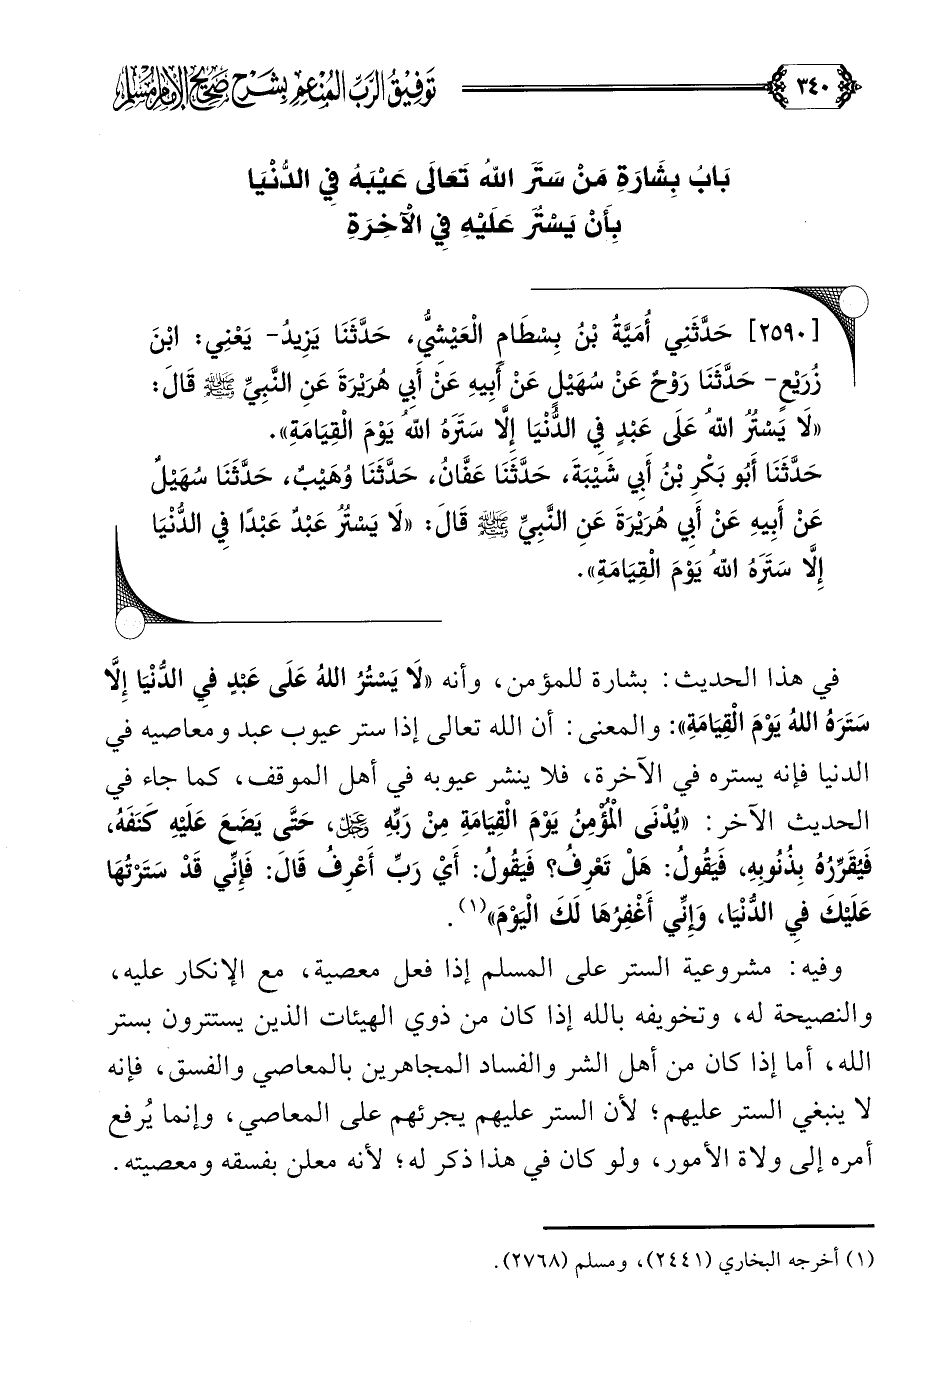 ٣٤٠ تَوْفِيقُ الرَّبِّ المُنْعِمِ بِشَرْحِ صَحِيحِ الإِمَامِ مُسْلِمٍ
بَابُ بِشَارَةِ مَنْ سَتَرَ اللهُ تَعَالَى عَيْبَهُ فِي الدُّنْيَا
بِأَنْ يَسْتُرَ عَلَيْهِ فِي الْآخِرَةِ
[٢٥٩٠] حَدَّثَنِي أُمَيَّةُ بْنُ بِسْطَامٍ الْعَيْشِيُّ، حَدَّثَنَا يَزِيدُ- يَعْنِي: ابْنَ
زُرَيْعٍ- حَدَّثَنَا رَوْحٌ عَنْ سُهَيْلٍ عَنْ أَبِيهِ عَنْ أَبِي هُرَيْرَةَ عَنِ النَّبِيِّ ﷺ قَالَ:
«لَا يَسْتُرُ اللهُ عَلَى عَبْدٍ فِي الدُّنْيَا إِلَّا سَتَرَهُ اللهُ يَوْمَ الْقِيَامَةِ».
حَدَّثَنَا أَبُو بَكْرِ بْنُ أَبِي شَيْبَةَ، حَدَّثَنَا عَفَّانُ، حَدَّثَنَا وُهَيْبٌ، حَدَّثَنَا سُهَيْلٌ
عَنْ أَبِيهِ عَنْ أَبِي هُرَيْرَةَ عَنِ النَّبِيِّ ﷺ قَالَ: «لَا يَسْتُرُ عَبْدٌ عَبْدًا فِي الدُّنْيَا
إِلَّا سَتَرَهُ اللهُ يَوْمَ الْقِيَامَةِ».
في هذا الحديث: بشارة للمؤمن، وأنه «لَا يَسْتُرُ اللهُ عَلَى عَبْدٍ فِي الدُّنْيَا إِلَّا
سَتَرَهُ اللهُ يَوْمَ الْقِيَامَةِ»: والمعنى: أن الله تعالى إذا ستر عيوب عبد ومعاصيه في
الدنيا فإنه يستره في الآخرة، فلا ينشر عيوبه في أهل الموقف، كما جاء في
الحديث الآخر: «يُدْنَى الْمُؤْمِنُ يَوْمَ الْقِيَامَةِ مِنْ رَبِّهِ عز وجل، حَتَّى يَضَعَ عَلَيْهِ كَنَفَهُ،
فَيُقَرِّرُهُ بِذُنُوبِهِ، فَيَقُولُ: هَلْ تَعْرِفُ؟ فَيَقُولُ: أَيْ رَبِّ أَعْرِفُ قَالَ: فَإِنِّي قَدْ سَتَرْتُهَا
عَلَيْكَ فِي الدُّنْيَا، وَإِنِّي أَغْفِرُهَا لَكَ الْيَوْمَ»(١).
وفيه: مشروعية الستر على المسلم إذا فعل معصية، مع الإنكار عليه،
والنصيحة له، وتخويفه بالله إذا كان من ذوي الهيئات الذين يستترون بستر
الله، أما إذا كان من أهل الشر والفساد المجاهرين بالمعاصي والفسق، فإنه
لا ينبغي الستر عليهم؛ لأن الستر عليهم يجرئهم على المعاصي، وإنما يُرفع
أمره إلى ولاة الأمور، ولو كان في هذا ذكر له؛ لأنه معلن بفسقه ومعصيته.
(١) أخرجه البخاري (٢٤٤١)، ومسلم (٢٧٦٨).